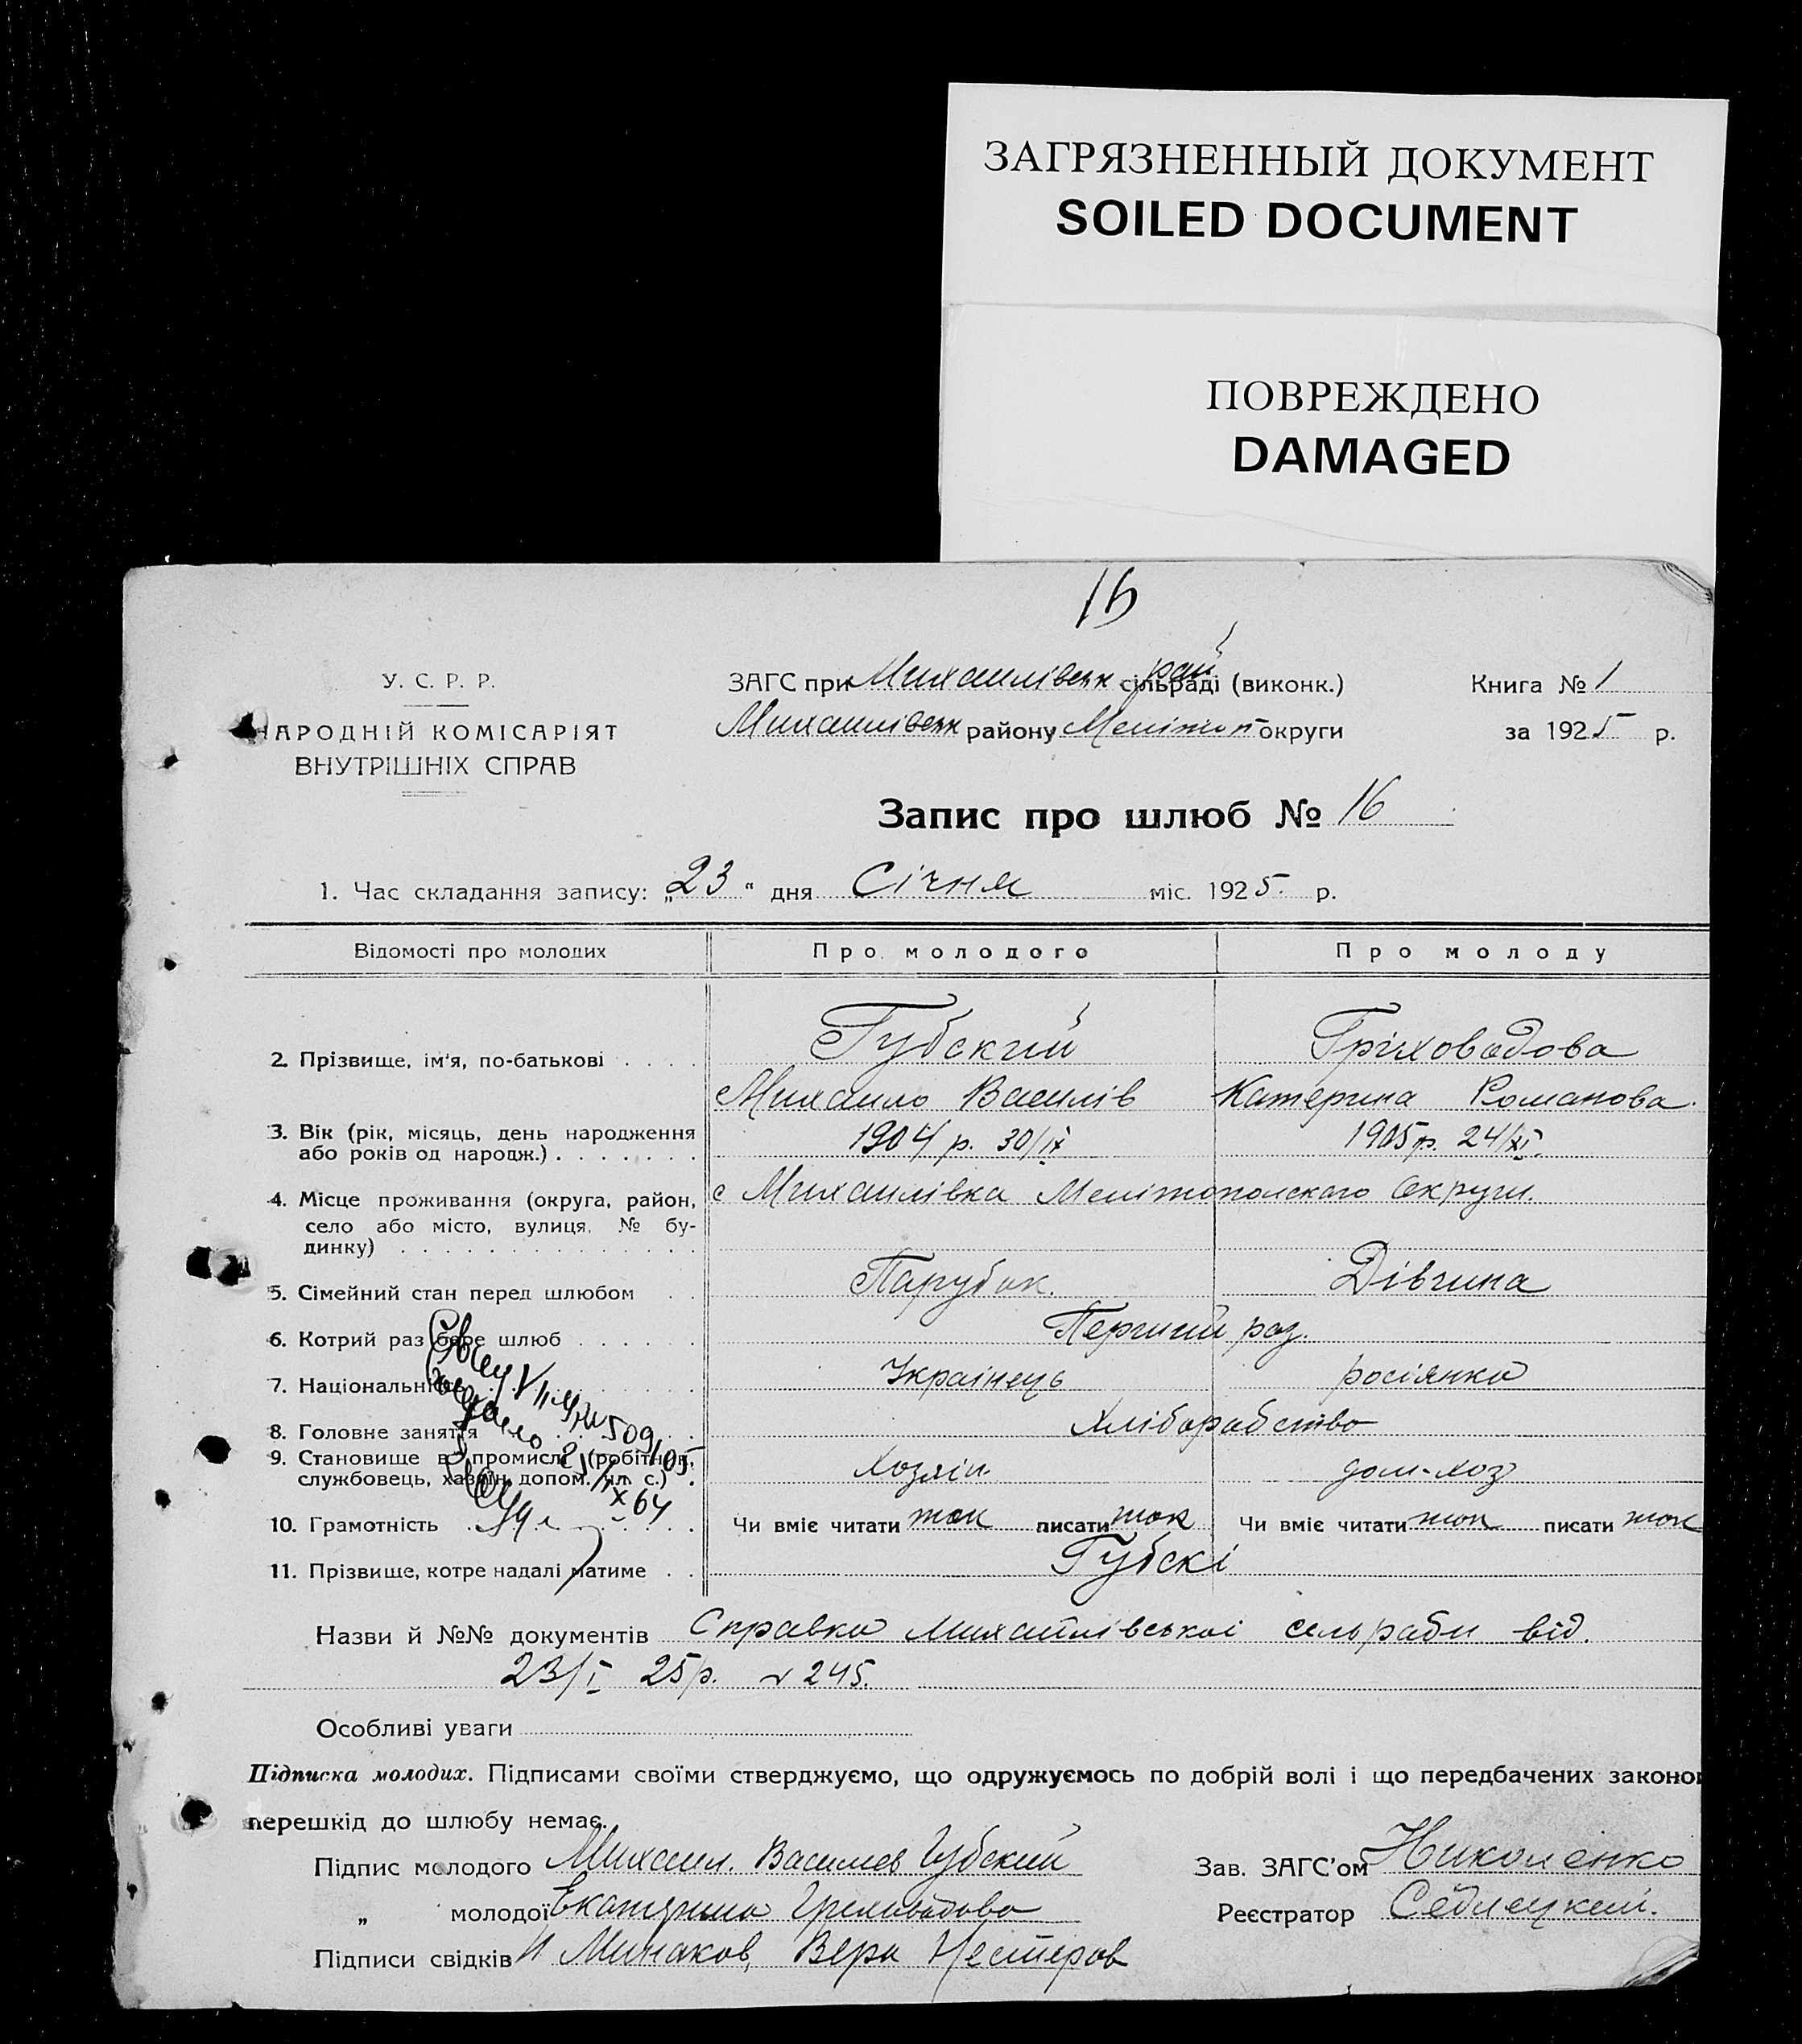 ЗАГРЯЗНЕННЫЙ ДОКУМЕНТ
SOILED DOCUMENT
ПОВРЕЖДЕНО
DAMAGED
16
У. С. Р. Р.
НАРОДНІЙ КОМІСАРІЯТ
ВНУТРІШНІХ СПРАВ
ЗАГС при Михаилівськ рай сільраді (виконк.)
Михаилівськ району Мелітоп округи
Книга № 1
за 1925 р.
Запис про шлюб № 16
1. Час складання запису: „23“ дня Січня міс. 1925 р.
Відомості про молодих Про молодого Про молоду
2. Прізвище, ім'я, по-батькові . . . . Губский Гріховодова
Михаило Василів Катерина Романова.
3. Вік (рік, місяць, день народження або років од народж.) . . . . . . . 1904 р. 30/IX 1905 р. 24/XI.
4. Місце проживання (округа, район, село або місто, вулиця, № будинку) с Михаилівка Мелітопольского Округи.
5. Сімейний стан перед шлюбом . . Парубок. Дівчина
6. Котрий раз бере шлюб . . . . . . Перший раз.
7. Національність Українець росіянка
8. Головне заняття Хліборобство
9. Становище в промислі (робітник, службовець, хазяїн, допом. чл. с.) . Хозяін. дом-хоз
10. Грамотність Чи вміє читати так писати так Чи вміє читати так писати так
11. Прізвище, котре надалі матиме . . Губскі
509/05
64
Назви й №№ документів Справка Михайлівської сельради від.
23/I 25р. № 245.
Особливі уваги
Підписка молодих. Підписами своїми стверджуємо, що одружуємось по добрій волі і що передбачених законо
перешкід до шлюбу немає.
Підпис молодого Михаил. Васильев Губский Зав. ЗАГС'ом Николенко
„ молодої Екатерина Греховодова Реєстратор Седлецкий.
Підписи свідків И Минаков, Вера Нестеров